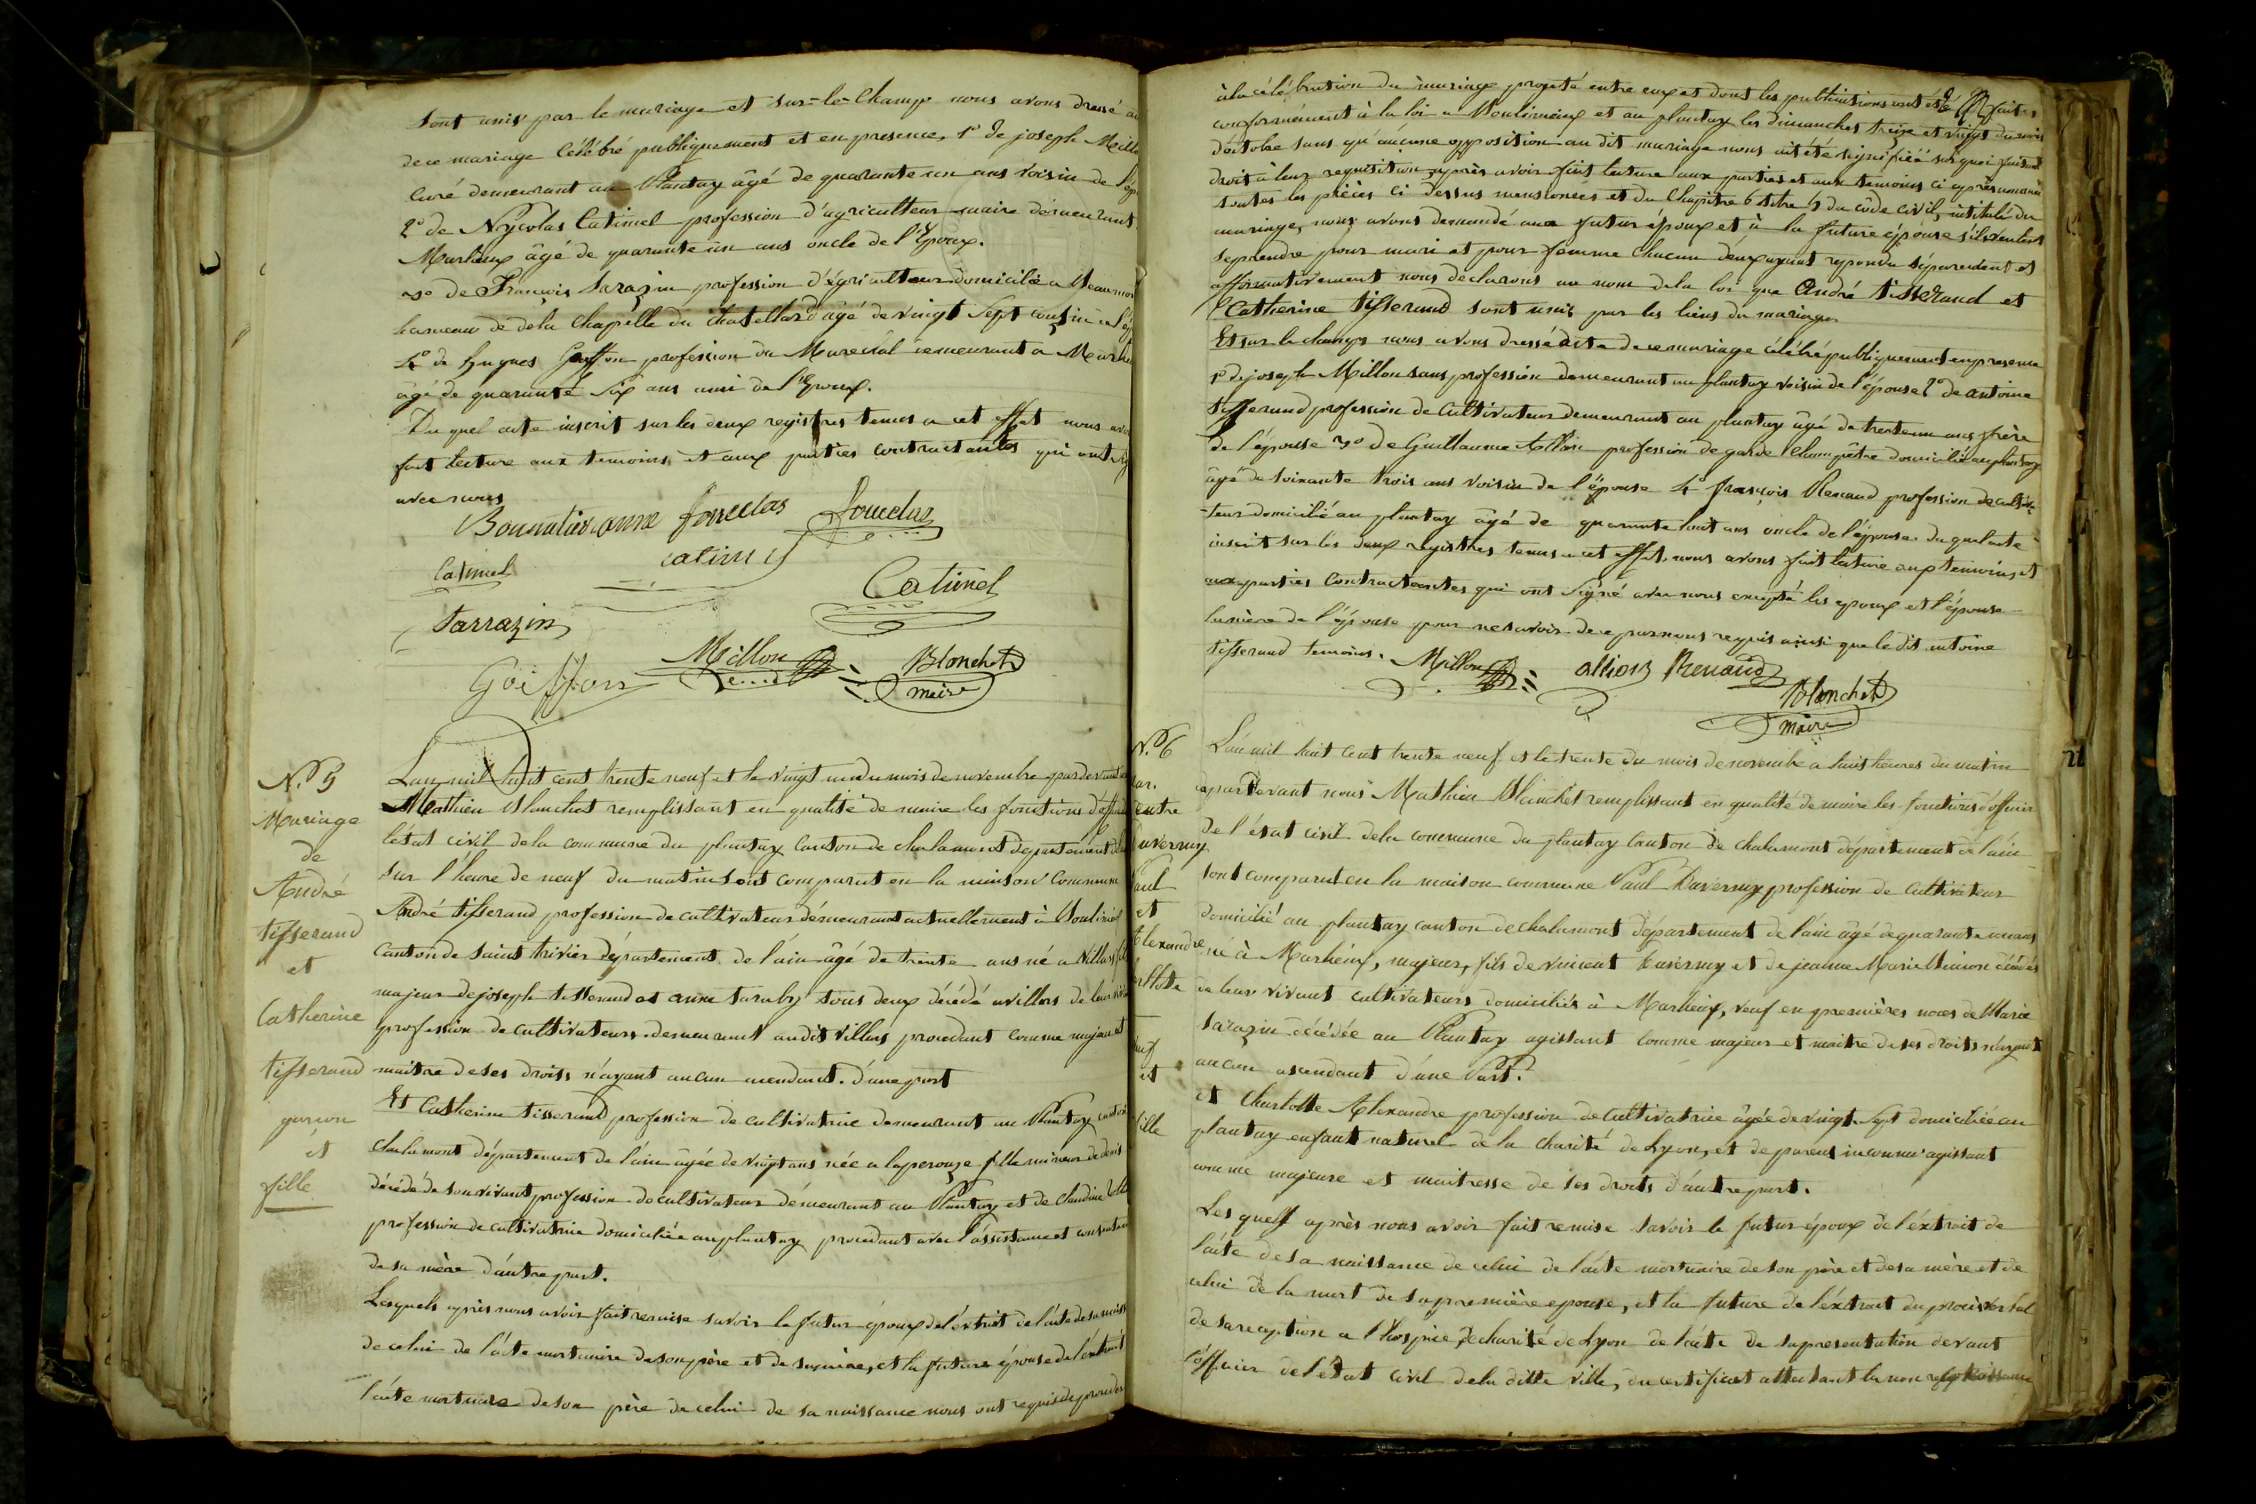 sont unis par le mariage et sur-le-champ nous avons dressé
de ce mariage célébré publiquement et en presence, 1º de joseph
curé demeurant au Plantay âgé de quarante un ans voisin de
2º de Nycolas Catimel profession d'agriculteur maire démeurant
Marlieux âgé de quarante un ans oncle de l'Epoux.
3º de François Sarazin profession d'égriculteur domicilié a
hameau de dela Chapelle du Chatellard âgé de vingt sept cousin
4º de hugues Goiffon profession du Marechal demeurant a
âgé de quarante six ans ami de l'Epoux.
Du quel acte inscrit sur les deux registres tenus a cet effet nous
fait lecture aux temoins et aux parties contractantes qui ont
avec nous
Bonnatier anne fourclas fourclas
Catimel catimel
Catimel
Sarrazin
Goiffon Millon Blonchet
maire
N.º 5
Mariage
de
André
tisserand
et
Catherine
tisserand
garçon
et
fille
L'an mil huit cent trente neuf et le vingt un du mois de novembre pardevant
Mathieu Blanchet remplissant en qualité de maire les fonctions
l'état civil dela commune du plantay canton de chalamont departement
sur l'heure de neuf du matin sont comparut en la maison commune
André tisserand profession de cultivateur démeurant actuellement à
canton de saint trivier département de l'ain âgé de trente ans né a Villars
majeur de joseph tisserand et anne taraby tous deux décédé a villars de leur
profession de cultivateurs demeurant au dit villars procedant comme majeur et
maitre de ses droits n'ayant aucun ascendant. d'une part
Et Catherine tisserand profession de cultivatrice demeurant au Plantay
chalamont département de l'ain âgée de vingt ans née a laperouze fille mineur de
décédé de son vivant profession de cultivateur démeurant au Plantay et de claudine
profession de cultivatrice domiciliée au plantay procedant avec l'assistance et
de sa mère d'autre part.
Lesquels après nous avoir fait remise savoir le futur époux de l'éxtrait de l'acte de sa
de celui de l'acte mortuaire de son père et de sa mère, et la future épouse de l'extrait
l'acte mortuaire de son père de celui de sa naissance nous ont requis de proceder
à la célébration du mariage projeté entre eux et dont les publications ont été faites
conformément à la loi a et au plantay les dimanches treize et vingt du mois
d'octobre sans qu'aucune opposition au dit mariage nous ait été signifiée
droit à leur requisition, après avoir fait lecture aux parties et aux temoins ci après
toutes les pièces ci dessus mensionées et du Chapitre 6 titre du côde civil, intitulé du
mariage, nous avons demandé aux futur époux et à la future épouse s'ils veulent
se prendre pour mari et pour femme chacun deux ayant repondu séparement et
affirmativement nous declarons au nom dela loi que André tisserand et
Catherine tisserand sont unis par les liens du mariage
Et sur le champ nous avons dressé acte de ce mariage célébré publiquement en presence
1º de joseph Millon sans profession demeurant au plantay voisin de l'épouse 2º de antoine
tisserand profession de cultivateur demeurant au plantay âgé de trente un ans frère
de l'épouse 3º de Guillaume Allion profession de garde Champêtre domicilié au plantay
âgé de soixante trois ans voisin de l'épouse 4º françois Renaud profession de
teur domicilié au plantay âgé de quarante huit ans oncle de l'épouse. du quel acte
inscrit sur les deux registres tenus a cet effet, nous avons fait lecture aux temoins, et
aux parties contractentes qui ont signé avec nous excepté les epoux et l'épouse
la mère de l'épouse pour ne savoir de ce par nous requis ainsi que le dit antoine
tisserand temoins. Millon allion Renaud
Blonchet
maire
N.º 6
entre
Paul
et
Alexandre
et
fille
L'an mil huit cent trente neuf et le trente du mois de novembre a huit heures du matin
par devant nous Mathieu Blanchet remplissant en qualité de maire les fonctions d'officier
de l'état civil dela commune du plantay canton de chalamont département de l'ain
sont comparut en la maison commune Paul Duvernay profession de cultivateur
domicilié au plantay canton de chalamont département de l'ain âgé de quarante un ans
né à Marlieux, majeur, fils de vincent Duvernay et de jeanne Marie décédés
de leur vivant cultivateurs domiciliés à Marlieux, veuf en premières noces de Marie
sarazin décédée au Plantay agissant comme majeur et maitre de ses droits n'ayant
aucun ascendant d'une Part.
et Charlotte Alexandre profession de cultivatrice âgée de vingt-sept domiciliée au
plantay enfant naturel de la charité de Lyon, et de parens inconnu agissant
comme majeure et maitresse de ses droits d'autre part.
Lesquels après nous avoir fait remise savoir le futur époux de l'éxtrait de
l'acte de sa naissance de celui de l'acte mortuaire de son père et de sa mère et de
celui de la mort de sa première epouse, et la future de l'éxtrait du procès verbal
de sa reception a l'hospice de charité de Lyon de l'acte de sa presentation devant
l'officier de l'état civil dela ditte ville, du certificat attestant la non